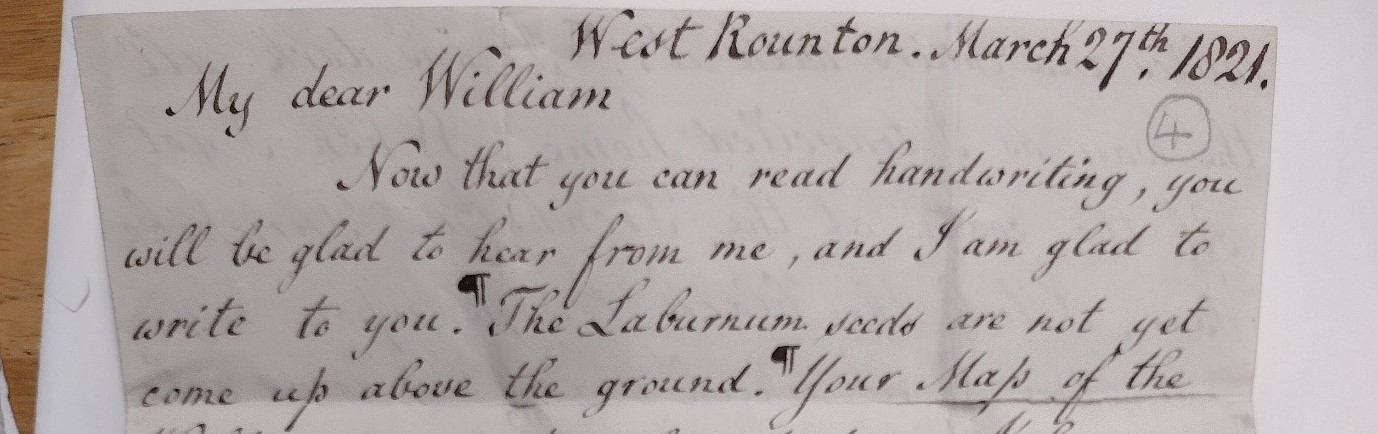 West Rounton. March 27th. 1821.
My dear William
4
Now that you can read handwriting, you
will be glad to hear from me, and I am glad to
write to you. ¶ The Laburnum seeds are not yet
come up above the ground. ¶ Your Map of the